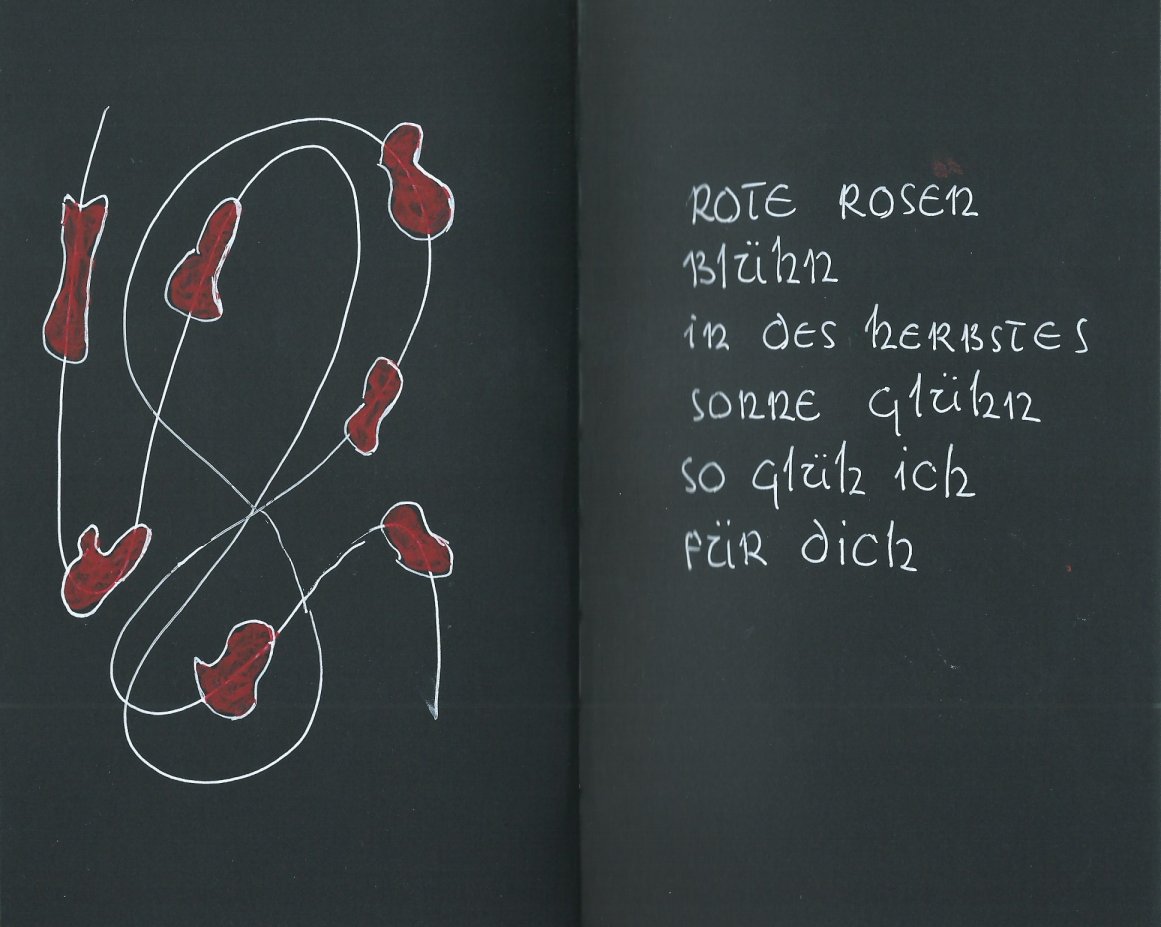 ROTE ROSEN
Blühn
in des HERBSTES
SONNE glühn
so glüh ich
füR dich